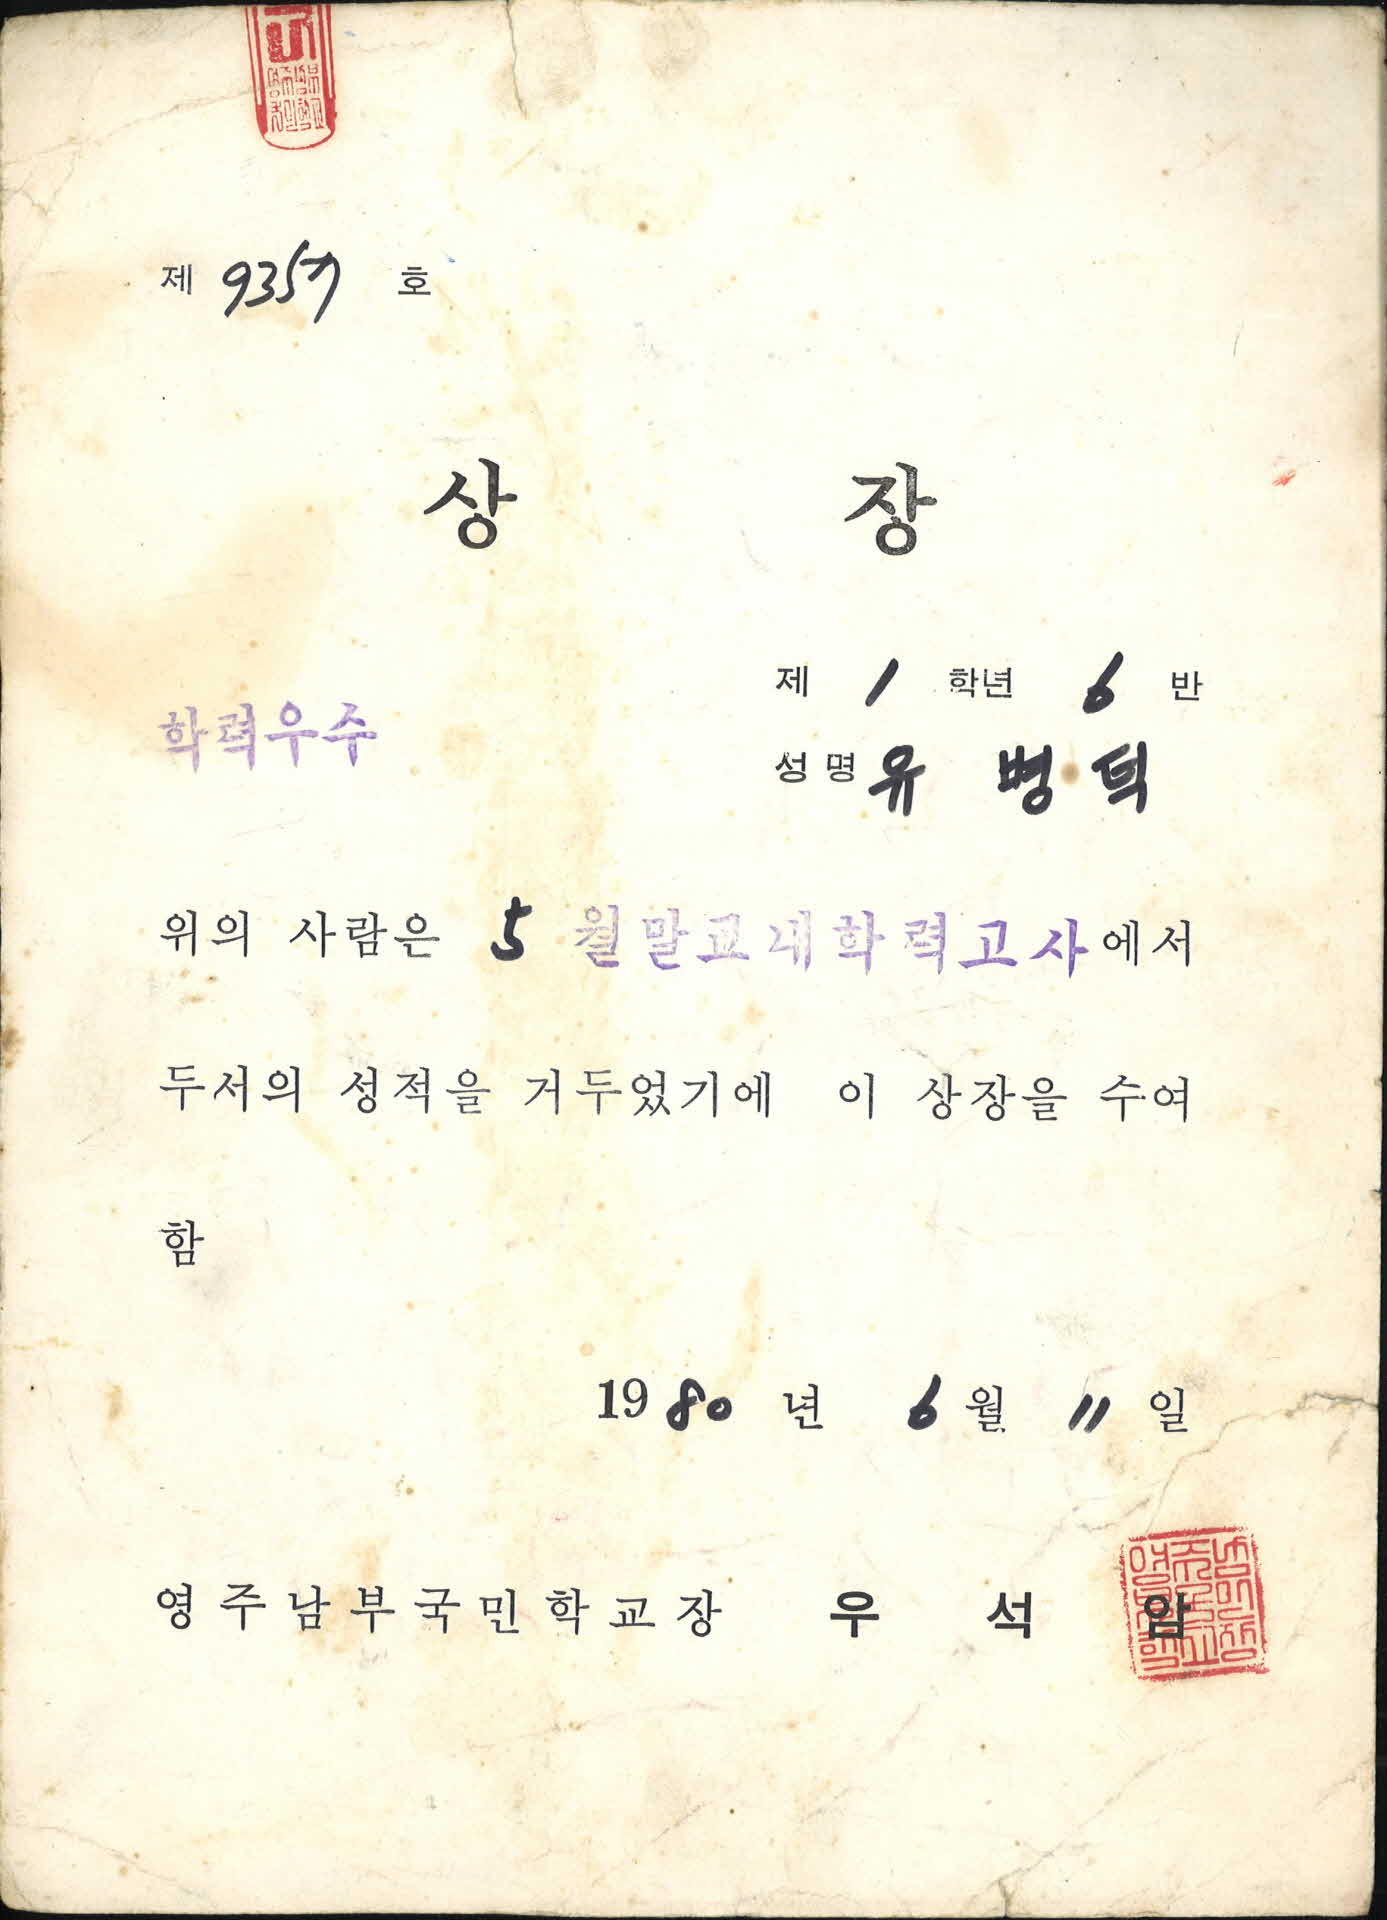 제 9357 호
상 장
제 1 학년 6 반
학력우수
성명 유 병 덕
위의 사람은 5 월말교내학력고사에서
두서의 성적을 거두었기에 이 상장을 수여
함
1980 년 6 월 11 일
영주남부국민학교장 우 석 암